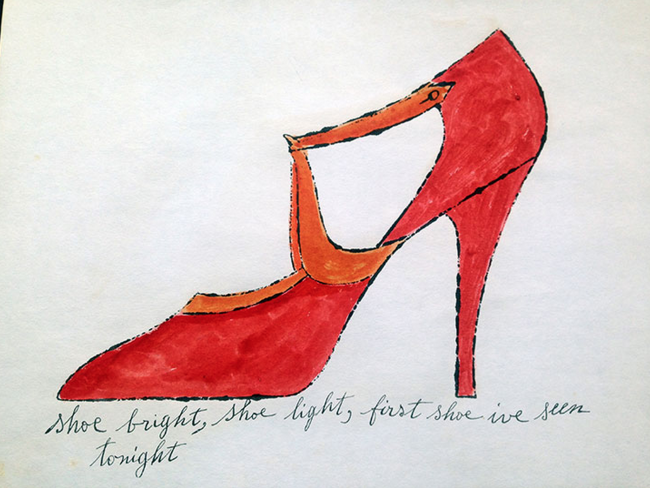 shoe bright, shoe light, first shoe ive seen
tonight